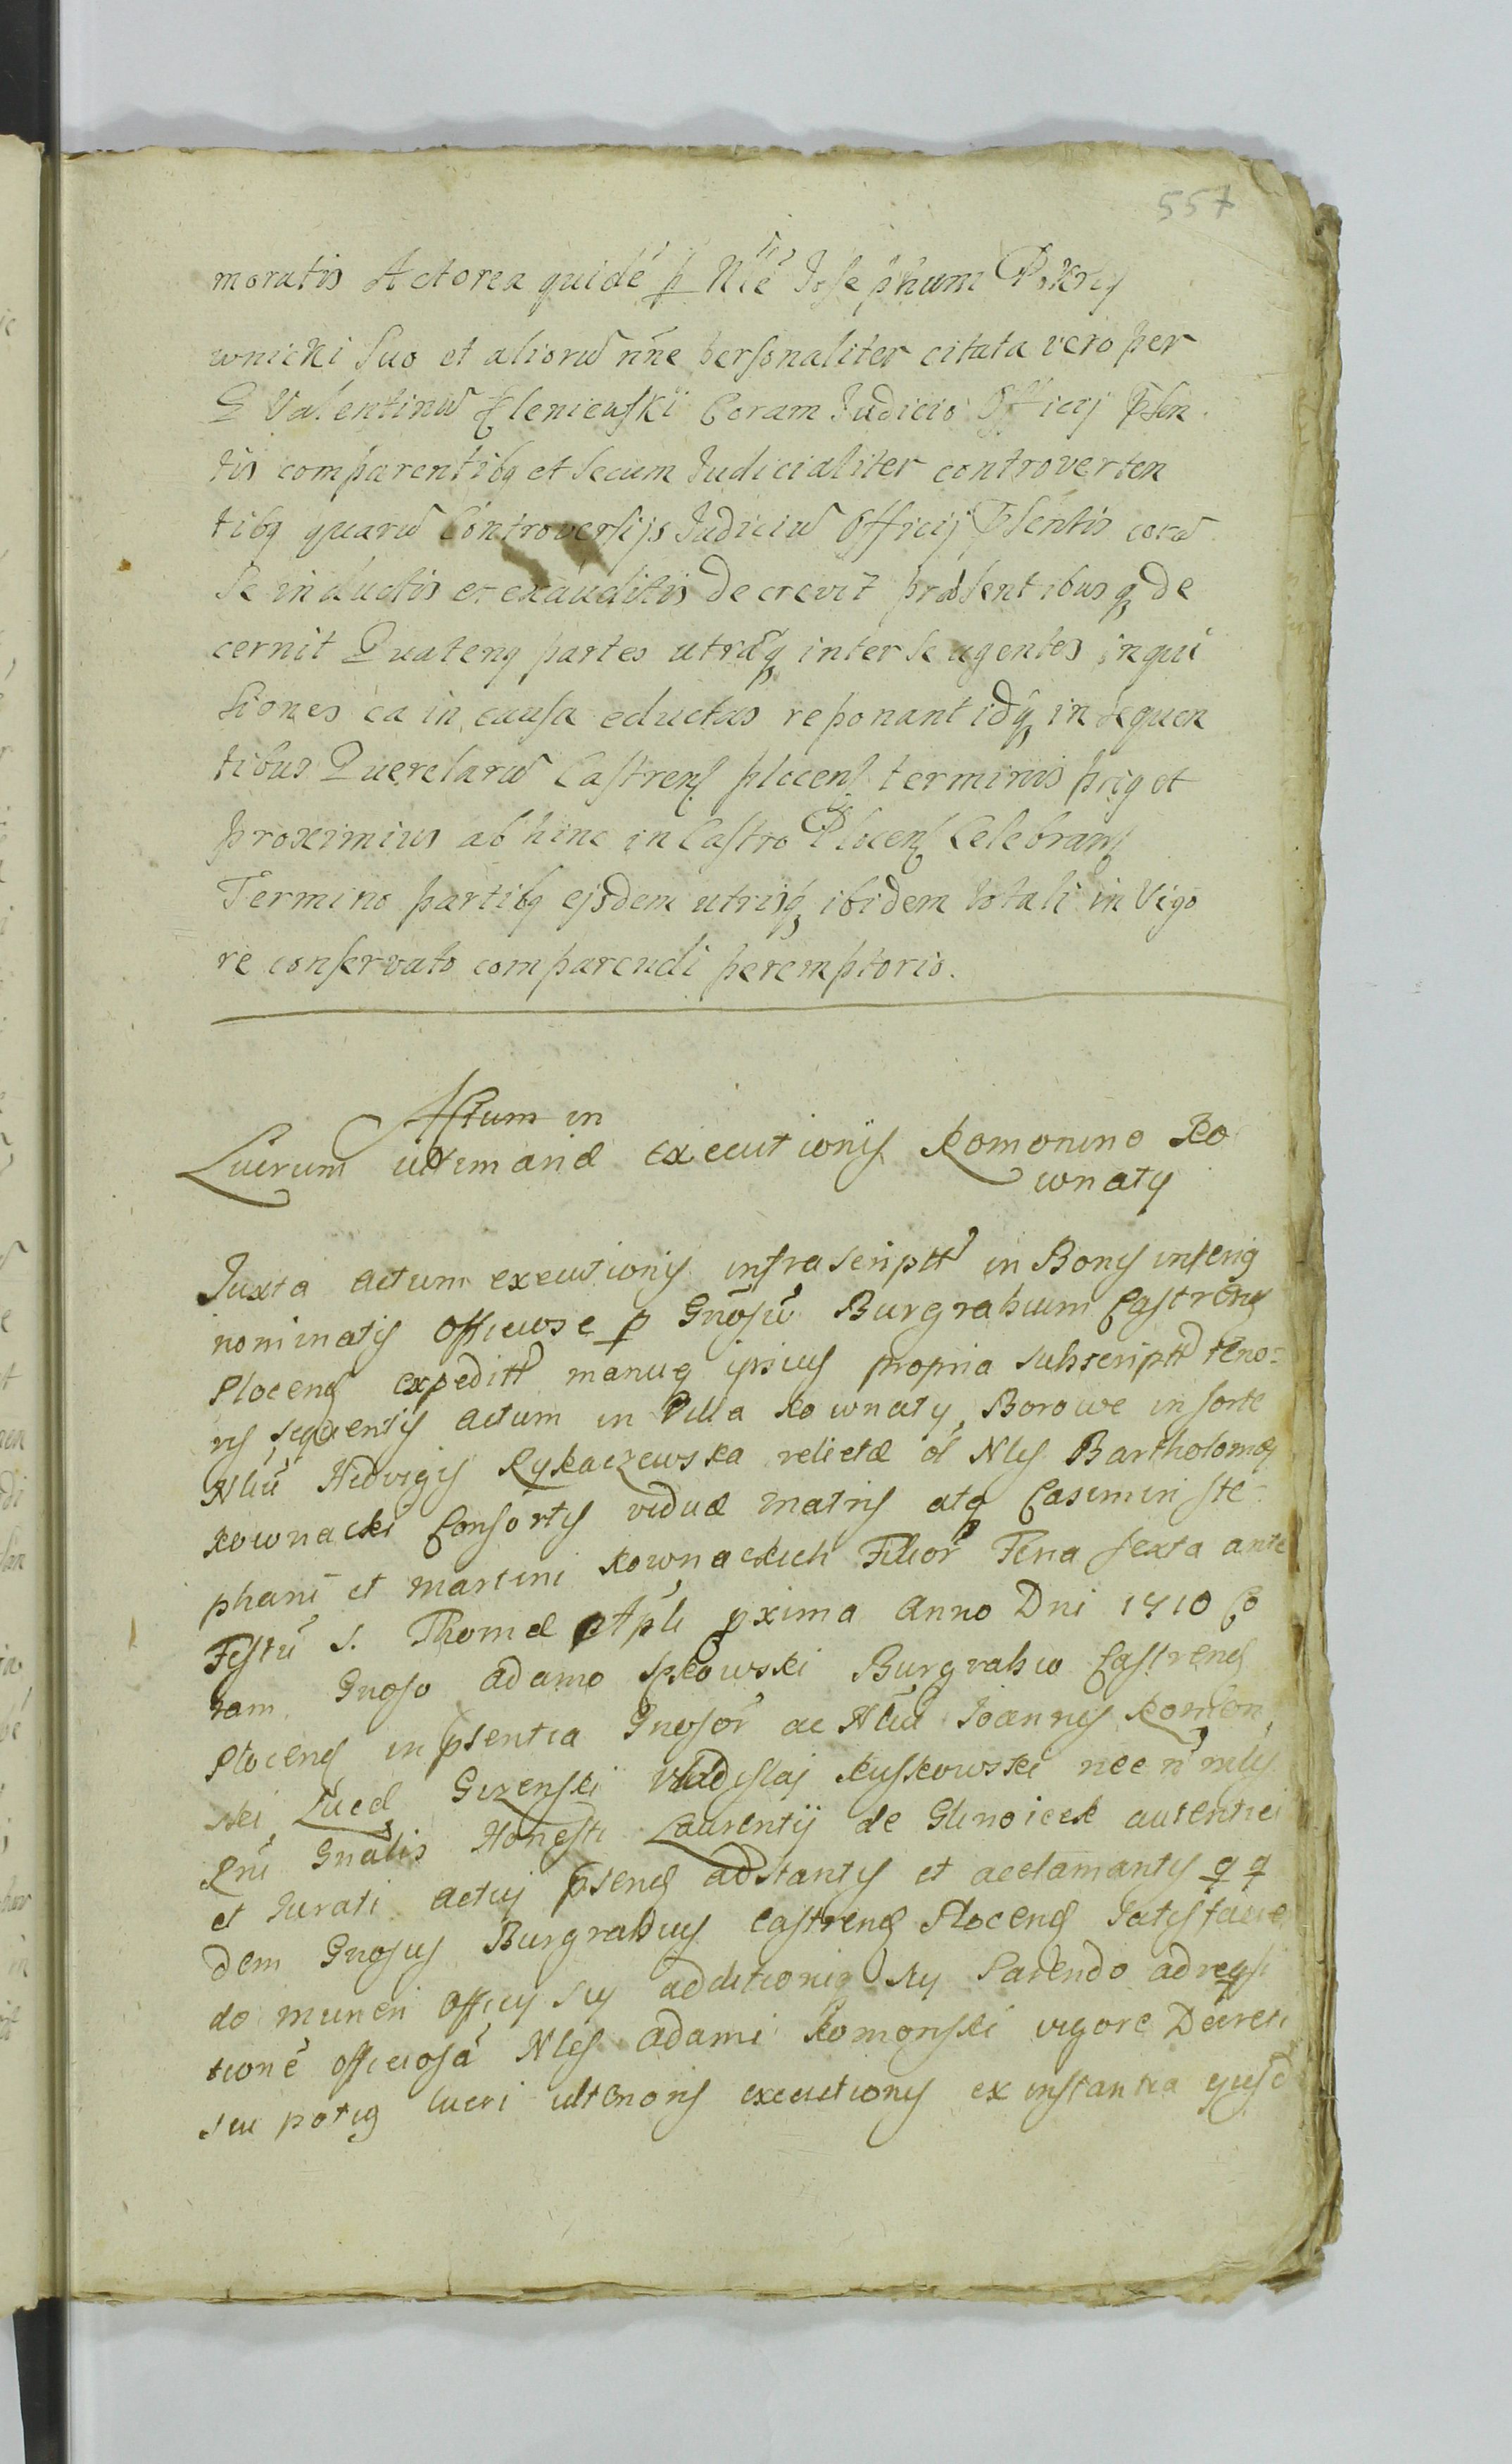 557
moratis Actorea quidé p Nlé Josephum Pokrzy
wnicki Suo et alioru nne personaliter citata vero per
G Valentinu Zleniewski Coram Judicio Officij Psen
tis comparentibq et secum Judicialiter controverten
tibq quaru Controversijs Judiciu Officij Psentis cora
se inductis et exauditis decrevit praesentibusq de
cernit Quatenq partes utraq inter se agentes inqui
sitiones ea in causa eductas reponant idq in sequen
tibus Querelaru Castrens plocens terminis priq et
proximius ab hinc in Castro Plocens Celebrans
Termino partibq ejsdem utrisq ibidem totali in Vigo
re conservato comparendi peremptorio.
Actum in
Lucrum ultimariae executionis Komonino Ko
wnaty
Juxta actum executionis infrascriptt in Bonis inferiq
nominatis officiose p Gnosu Burgrabium Castrens
Plocens expeditt manuq ipsius propria subscriptt teno=
ris sequentis actum in Villa Kownaty Borowe in sorte
Nliu Hedvigis Rykaczewska relictae ol Nlis Bartholomaei
Kownacki Consortis viduae matris atq Casimiri Ste=
phani et Martini Kownackich Filior Feria sexta ante
Festu S. Thomae Apli pxima Anno Dni 1710 Co
ram Gnoso Adamo Lpkowski Burgrabio Castrens
Plocens in psentia Gnosor ac Nliu Joannis Komon
ski Lucae Gizenski Vladislai Kuskowski nec n mlis
Rni Gnalis Honesti Laurentij de Glinoieck autentici
et Jurati actui psens adstantis et acclamantis q q
dem Gnosus Burgrabius Castrens Plocens Satisfacien
do muneri officij sui additioniq sui Parendo ad requisi
tioné officiosá Nlis Adami Komonski vigore Decreti
seu potiq lucri ulterioris executionis ex instantia ejusd